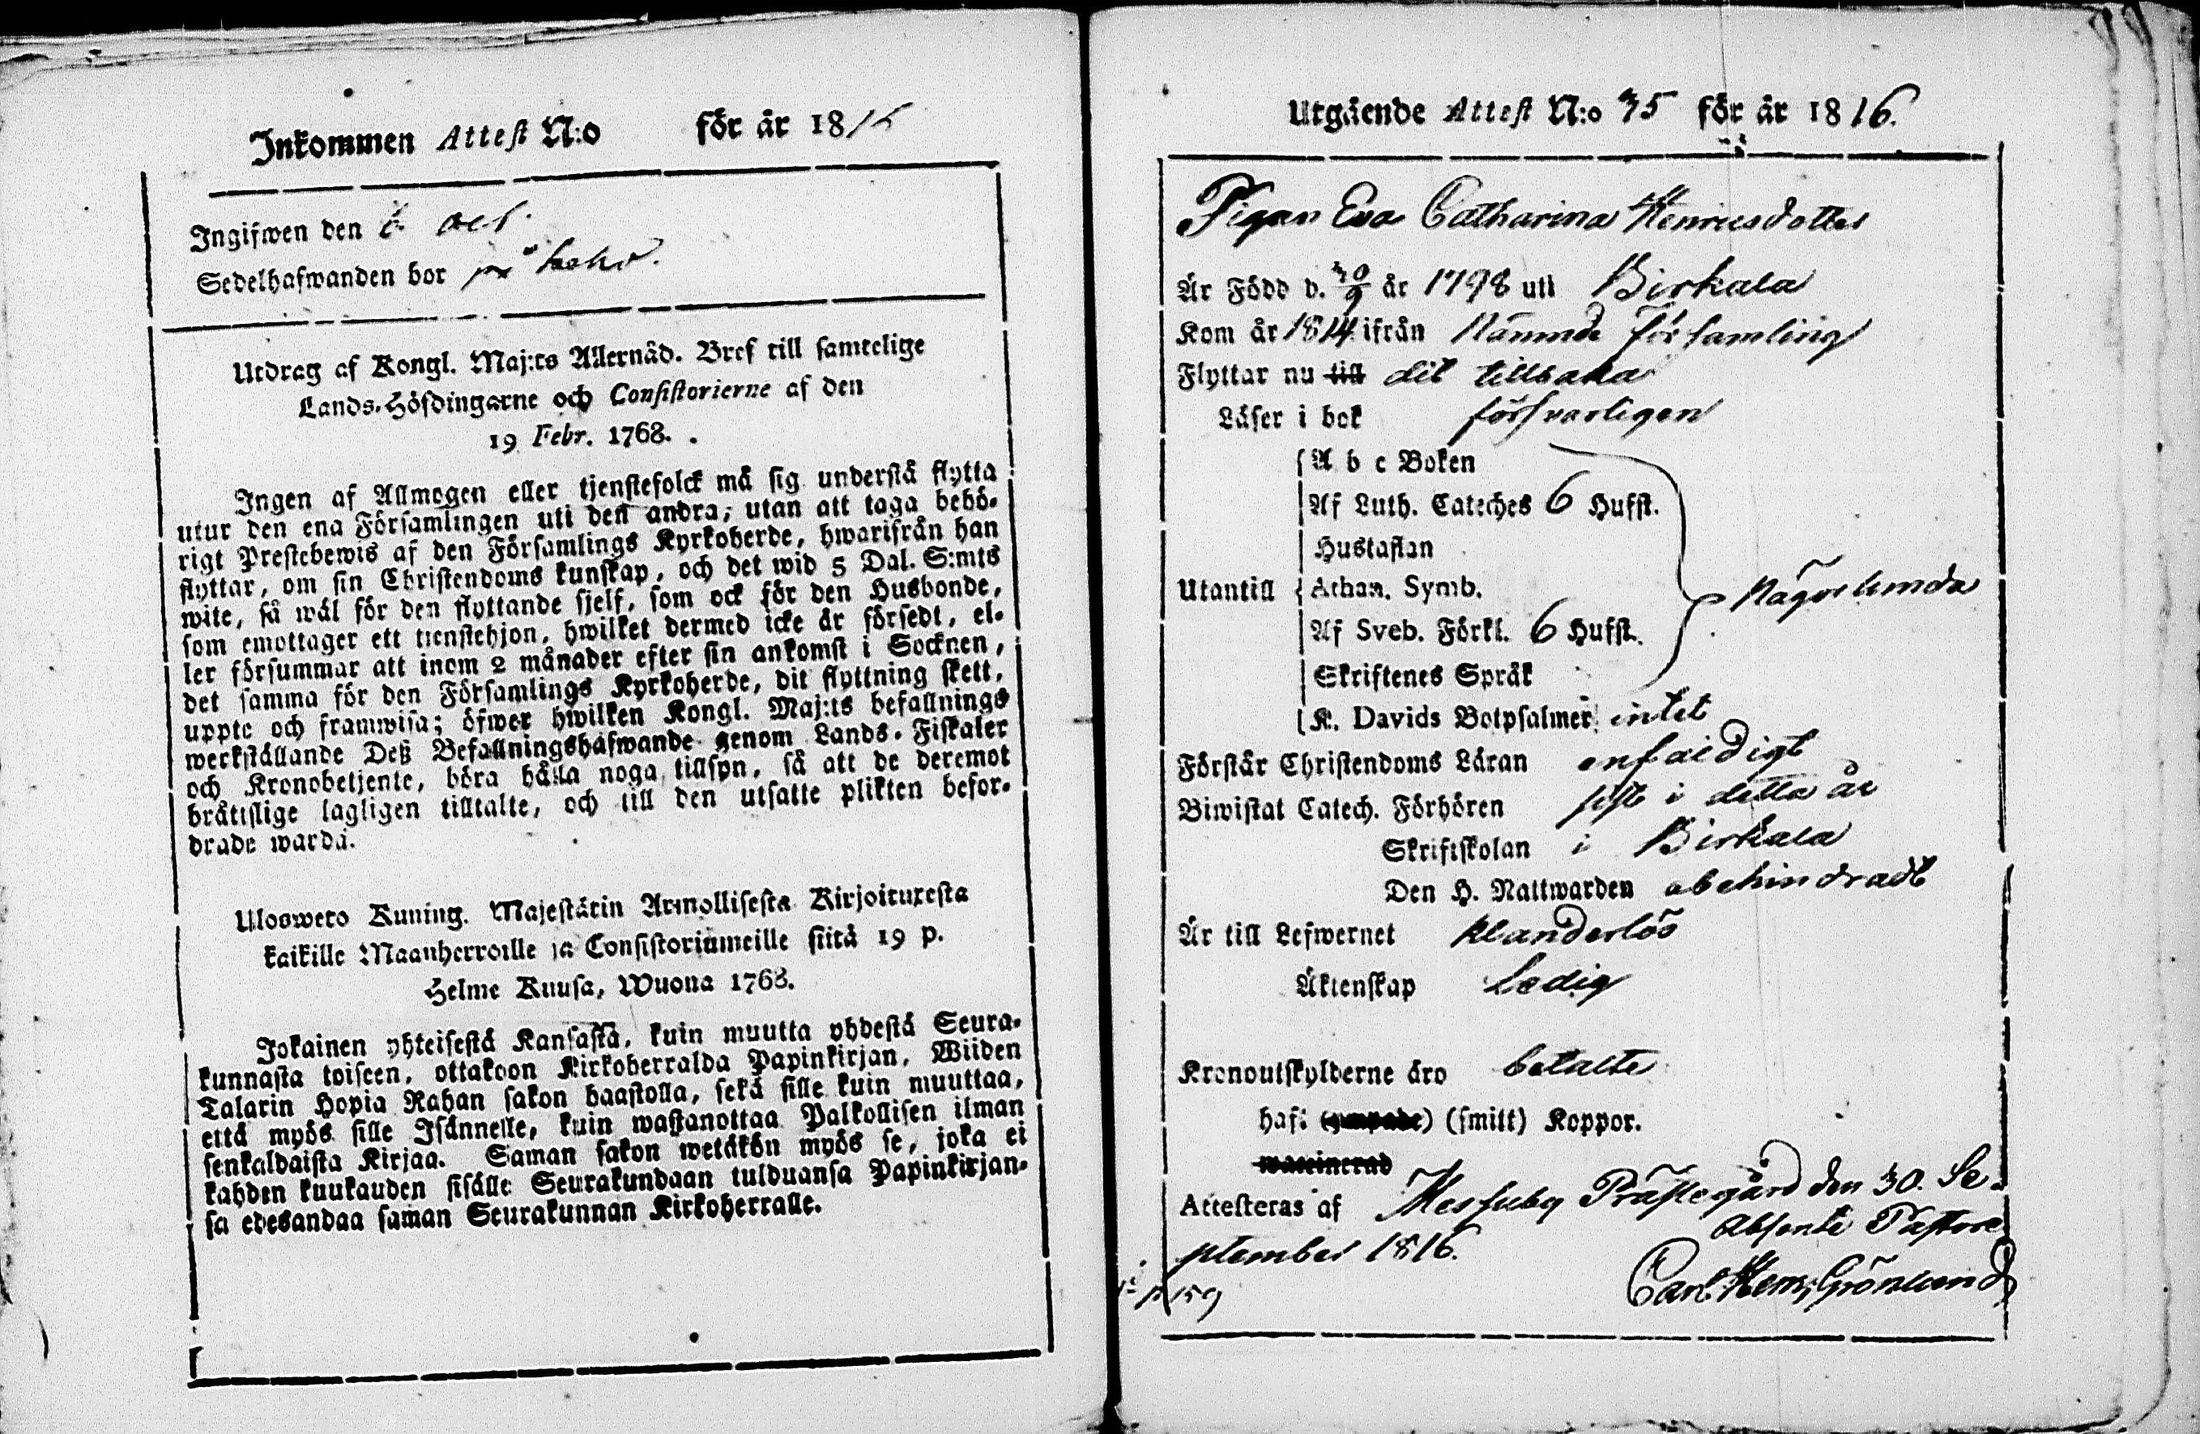 Inkommen Attest N:o för år 1816
Ingifwen den 6 oct.
Sedelhafwanden bor på
Utdrag af Kongl. Maj:ts Allernåd. Bref till samtelige
Lands-Höfdingarne och Consistorierne af den
19 Febr. 1768.
Ingen af Allmogen eller tjenstefolck må sig understå flytta
utur den ena Församlingen uti den andra, utan att taga behö-
rigt Prestebewis af den Församlings Kyrkoherde, hwarifrån han
flyttar, om sin Christendoms kunskap, och det wid 5 Dal. S:mts
wite, så wäl för den flyttande sjelf, som ock för den Husbonde,
som emottager ett tienstehjon, hwilket dermed icke är försedt, el-
ler försummar att inom 2 månader efter sin ankomst i Socknen,
det samma för den Församlings Kyrkoherde, dit flyttning skett,
uppte och framwisa; öfwer hwilken Kongl. Maj:ts befallnings
werkställande Deß Befallningshafwande genom Lands-Fiskaler
och Kronobetjente, böra hålla noga tillsyn, så att de deremot
bråttslige lagligen tilltalte, och till den utsatte plikten befor-
drade warda.
Ulosweto Kuning. Majestätin Armollisesta Kirjoituxesta
kaikille Maanherroille ja Consistoriumeille siitä 19 p.
Helme Kuusa, Wuona 1768.
Jokainen yhteisestä Kansasta, kuin muutta yhdestä Seura-
kunnasta toiseen, ottakoon Kirkoherralda Papinkirjan, Wiiden
Talarin Hopia Rahan sakon haastolla, sekä sille kuin muuttaa,
että myös sille Isännelle, kuin wastanottaa Palkollisen ilman
senkaldaista Kirjaa. Saman sakon wetäkön myös se, joka ei
kahden kuukauden sisälle Seurakundaan tulduansa Papinkirjan-
sa edesandaa saman Seurakunnan Kirkoherralle.
Utgående Attest N:o 35 för år 1816.
Pigan Eva Catharina Henricsdotter
Är Född d. 30/9 år 1798 uti Birkala
Kom år 1814 ifrån Nämnde församling
Flyttar nu till dit tillbaka
Läser i bok försvarligen
A b c Boken
Af Luth. Cateches 6 Hufst.
Hustaflan
Utantill Athan. Symb. någorlunda
Af Sveb. Förkl. 6 Hufst.
Skriftenes Språk
K. Davids Botpsalmer intet
Förstår Christendoms Läran enfaldigt
Biwistat Catech. Förhören sist i detta år
Skriftskolan i Birkala
Den H. Nattwarden obehindradt
Är till Lefwernet klanderlös
Äktenskap Ledig
Kronoutskylderne äro betalte
haft (ympade) (smitt) Koppor.
waccinerad
Attesteras af Messuby Prästegård den 30. Se-
ptember 1816. Absente Pastore
Carl Henr. Grönlund
p 159